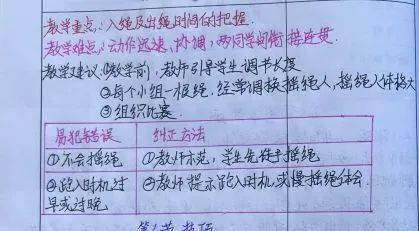 教学重点:入绳及出绳时间的把握.
教学难点:动作迅速、协调,两同学间衔接连贯.
教学建议:①教学前,教师引导学生调节长度
②每个小组一根绳,经常调换摇绳人,摇绳人体格大
③组织比赛.
易犯错误 纠正方法
①不会摇绳 ①教师示范,学生先徒手摇绳
②跑入时机过早或过晚 ②教师提示跑入时机或慢摇绳体会.